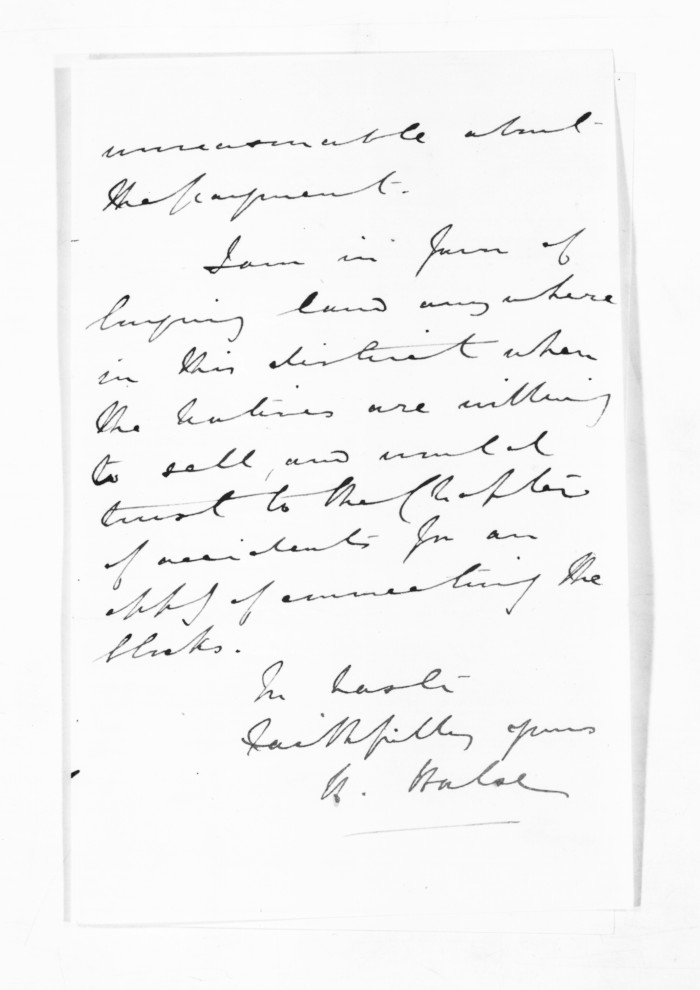 unreasonable about
the payment.
I am in favr of
buying land anywhere
in this district when
the Natives are willing
to sell, and would
trust to the Chapter
of accidents for an
oppy of connecting the
blocks.
In haste
Faithfully yours
H. Halse